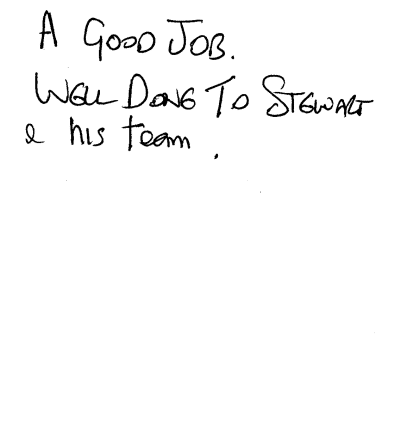 A GOOD JOB.
WELL DONE TO STEWART
& his team.